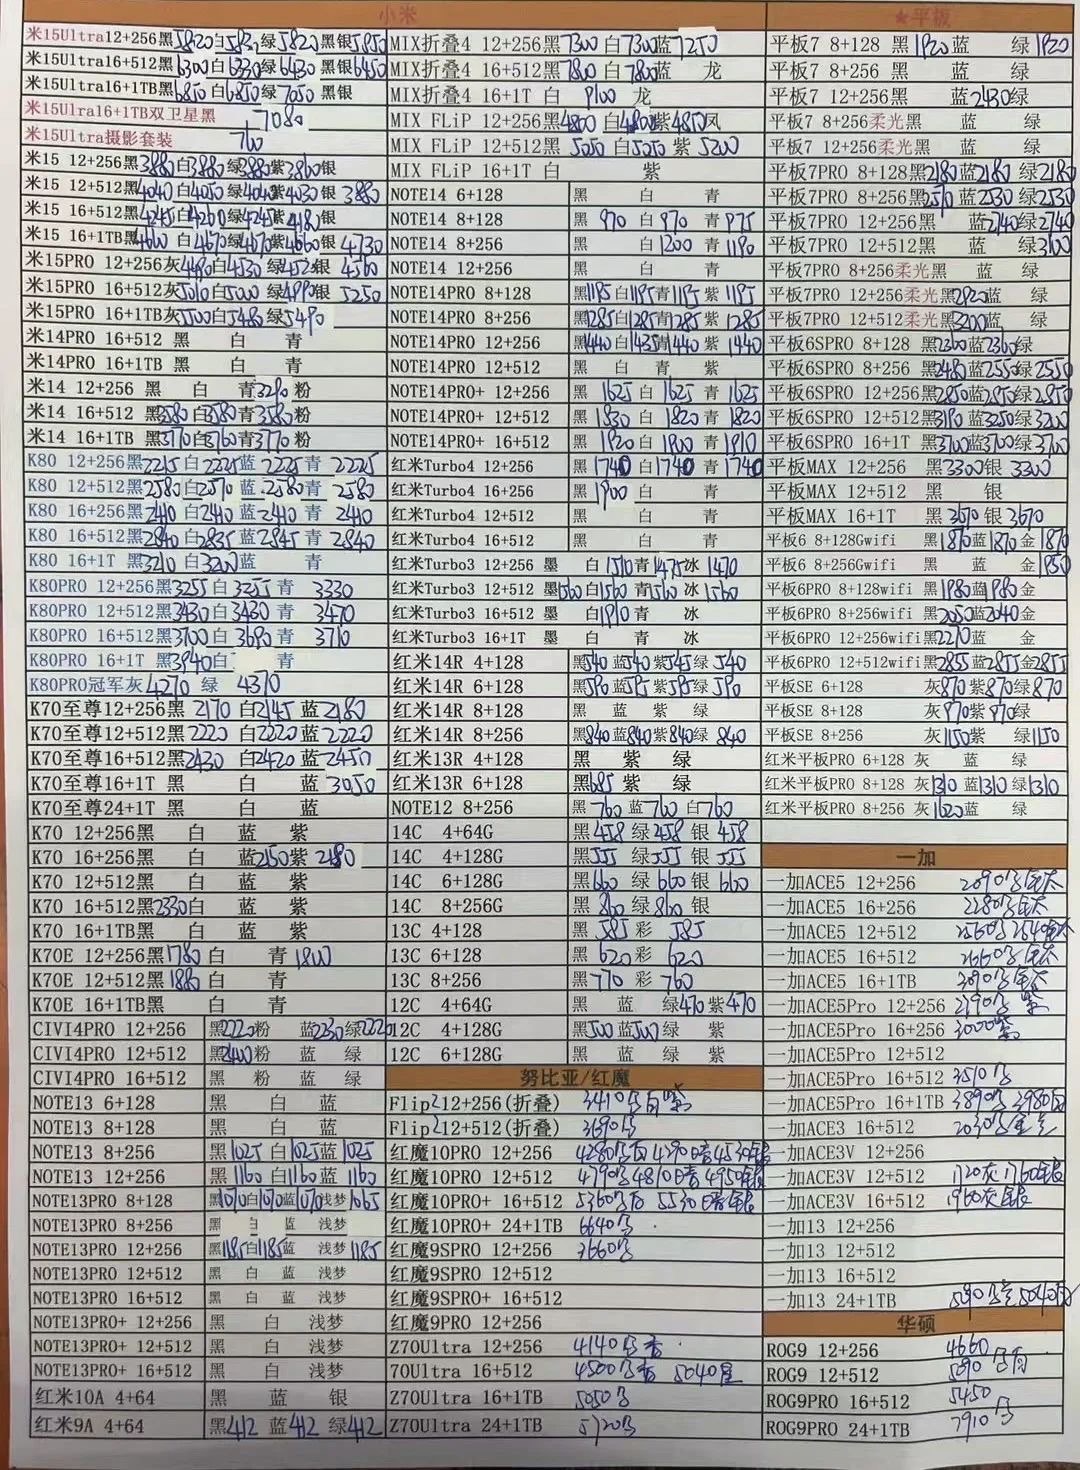 小米
米15Ultra12+256黑5820白5830绿5820黑银5850
米15Ultra16+512黑6300白6330绿6430黑银6450
米15Ultra16+1TB黑6850白6850绿7050黑银
米15Ulra16+1TB双卫星黑 7080
米15Ultra摄影套装 760
米15 12+256黑3880白3880绿3880紫3860银
米15 12+512黑4040白4050绿4040紫4030银 3880
米15 16+512黑4245白4260绿4245紫4180银
米15 16+1TB黑4660白4670绿4670紫4660银 4730
米15PRO 12+256灰4490白4530绿4525银 4560
米15PRO 16+512灰5010白5000绿4990银 5250
米15PRO 16+1TB灰5500白5480绿5490
米14PRO 16+512 黑 白 青
米14PRO 16+1TB 黑 白 青
米14 12+256 黑 白 青3290粉
米14 16+512 黑3580白3580青3580粉
米14 16+1TB 黑3770白3760青3770粉
K80 12+256黑2215白2225蓝2225青 2225
K80 12+512黑2580白2570蓝2580青 2580
K80 16+256黑2410白2410蓝2410青 2410
K80 16+512黑2840白2835蓝2845青 2840
K80 16+1T 黑3210白3200蓝 青
K80PRO 12+256黑3255白3255青 3330
K80PRO 12+512黑3430白3430青 3470
K80PRO 16+512黑3700白3690青 3710
K80PRO 16+1T 黑3940白 青
K80PRO冠军灰4270 绿 4370
K70至尊12+256黑 2170 白2145 蓝2180
K70至尊12+512黑2220 白2220 蓝2220
K70至尊16+512黑2430 白2420 蓝2450
K70至尊16+1T 黑 白 蓝 3050
K70至尊24+1T 黑 白 蓝
K70 12+256黑 白 蓝 紫
K70 16+256黑 白 蓝2150紫 2180
K70 12+512黑 白 蓝 紫
K70 16+512黑2330白 蓝 紫
K70 16+1TB黑 白 蓝 紫
K70E 12+256黑1780白 青1800
K70E 12+512黑1880白 青
K70E 16+1TB黑 白 青
CIVI4PRO 12+256 黑2220粉 蓝2230绿2220
CIVI4PRO 12+512 黑2400粉 蓝 绿
CIVI4PRO 16+512 黑 粉 蓝 绿
NOTE13 6+128 黑 白 蓝
NOTE13 8+128 黑 白 蓝
NOTE13 8+256 黑1025白1025蓝1025
NOTE13 12+256 黑1160白1160蓝1160
NOTE13PRO 8+128 黑1070白1070蓝1070浅梦1065
NOTE13PRO 8+256 黑 白 蓝 浅梦
NOTE13PRO 12+256 黑1185白1185蓝 浅梦1185
NOTE13PRO 12+512 黑 白 蓝 浅梦
NOTE13PRO 16+512 黑 白 蓝 浅梦
NOTE13PRO+ 12+256 黑 白 浅梦
NOTE13PRO+ 12+512 黑 白 浅梦
NOTE13PRO+ 16+512 黑 白 浅梦
红米10A 4+64 黑 蓝 银
红米9A 4+64 黑412 蓝412 绿412
MIX折叠4 12+256黑7300 白7300蓝7250
MIX折叠4 16+512黑7800 白7800蓝 龙
MIX折叠4 16+1T 白 9100 龙
MIX FLiP 12+256黑4800 白4800紫4850凤
MIX FLiP 12+512黑 5050 白5050 紫 5200
MIX FLiP 16+1T 白 紫
NOTE14 6+128 黑 白 青
NOTE14 8+128 黑 970 白970 青975
NOTE14 8+256 白1200 青1190
NOTE14 12+256 黑 白 青
NOTE14PRO 8+128 黑1195白1195青1195紫 1195
NOTE14PRO 8+256 黑1285白1285青1285紫 1285
NOTE14PRO 12+256 黑1440白1435青1440紫 1440
NOTE14PRO 12+512 黑 白 青 紫
NOTE14PRO+ 12+256 黑 1625 白1625 青1625
NOTE14PRO+ 12+512 黑 1830 白1820 青1820
NOTE14PRO+ 16+512 黑 1920 白1900 青1910
红米Turbo4 12+256 黑1740 白1740 青1740
红米Turbo4 16+256 黑1900 白 青
红米Turbo4 12+512 黑 白 青
红米Turbo4 16+512 黑 白 青
红米Turbo3 12+256 墨 白1510青1475冰1470
红米Turbo3 12+512 墨1560白1560青1560冰1560
红米Turbo3 16+512 墨 白1910青 冰
红米Turbo3 16+1T 墨 白 青 冰
红米14R 4+128 黑540 蓝540紫545绿 540
红米14R 6+128 黑590蓝595紫595绿 590
红米14R 8+128 黑 蓝 紫 绿
红米14R 8+256 黑840蓝840紫840绿 840
红米13R 4+128 黑 紫 绿
红米13R 6+128 黑685紫 绿
NOTE12 8+256 黑760 蓝760 白760
14C 4+64G 黑458绿458 银 458
14C 4+128G 黑555 绿555 银 555
14C 6+128G 黑660 绿660 银 660
14C 8+256G 黑860绿860 银
13C 4+128 黑585 彩 585
13C 6+128 黑620彩 620
13C 8+256 黑770 彩 760
12C 4+64G 黑 蓝 绿470紫470
12C 4+128G 黑500蓝500绿 紫
12C 6+128G 黑 蓝 绿 紫
努比亚/红魔
Flip212+256(折叠) 3410
Flip212+512(折叠) 3690
红魔10PRO 12+256 4280 4290 4530
红魔10PRO 12+512 4790 4810 4950
红魔10PRO+ 16+512 5360 5530
红魔10PRO+ 24+1TB 6640
红魔9SPRO 12+256 3660
红魔9SPRO 12+512
红魔9SPRO+ 16+512
红魔9PRO 12+256
Z70Ultra 12+256 4140
70Ultra 16+512 4500 5040
Z70Ultra 16+1TB 5050
Z70Ultra 24+1TB 5720
★平板
平板7 8+128 黑1920蓝 绿1920
平板7 8+256 黑 蓝 绿
平板7 12+256 黑 蓝2430绿
平板7 8+256柔光黑 蓝 绿
平板7 12+256柔光黑 蓝 绿
平板7PRO 8+128黑2180蓝2180 绿2180
平板7PRO 8+256黑2510蓝2530绿2530
平板7PRO 12+256黑 蓝2740绿2740
平板7PRO 12+512黑 蓝 绿3100
平板7PRO 8+256柔光黑 蓝 绿
平板7PRO 12+256柔光黑2920蓝 绿
平板7PRO 12+512柔光黑3200蓝 绿
平板6SPRO 8+128 黑2360蓝2360绿
平板6SPRO 8+256 黑2480蓝2550绿2550
平板6SPRO 12+256黑2850蓝2850绿2850
平板6SPRO 12+512黑3190蓝3250绿3200
平板6SPRO 16+1T 黑3700蓝3700绿3700
平板MAX 12+256 黑3300银 3300
平板MAX 12+512 黑 银
平板MAX 16+1T 黑3670银 3670
平板6 8+128Gwifi 黑1870蓝1870金1870
平板6 8+256Gwifi 黑 蓝 金1950
平板6PRO 8+128wifi 黑1980蓝1980金
平板6PRO 8+256wifi 黑2050蓝2040金
平板6PRO 12+256wifi黑2270蓝 金
平板6PRO 12+512wifi黑2855蓝2855金2855
平板SE 6+128 灰870紫870绿870
平板SE 8+128 灰970紫970绿
平板SE 8+256 灰1150紫 绿1150
红米平板PRO 6+128 灰 蓝 绿
红米平板PRO 8+128 灰1310蓝1310绿1310
红米平板PRO 8+256 灰1620蓝 绿
一加
一加ACE5 12+256 2090
一加ACE5 16+256 2280
一加ACE5 12+512 2560 2540
一加ACE5 16+512 2660
一加ACE5 16+1TB 3090
一加ACE5Pro 12+256 2790
一加ACE5Pro 16+256 3000
一加ACE5Pro 12+512
一加ACE5Pro 16+512 3510
一加ACE5Pro 16+1TB 3890 3980
一加ACE3 16+512 2030
一加ACE3V 12+256
一加ACE3V 12+512 1720灰 1760银
一加ACE3V 16+512 1960灰银
一加13 12+256
一加13 12+512
一加13 16+512
一加13 24+1TB 5090 5040
华硕
ROG9 12+256 4660
ROG9 12+512 5090
ROG9PRO 16+512 5450
ROG9PRO 24+1TB 7910